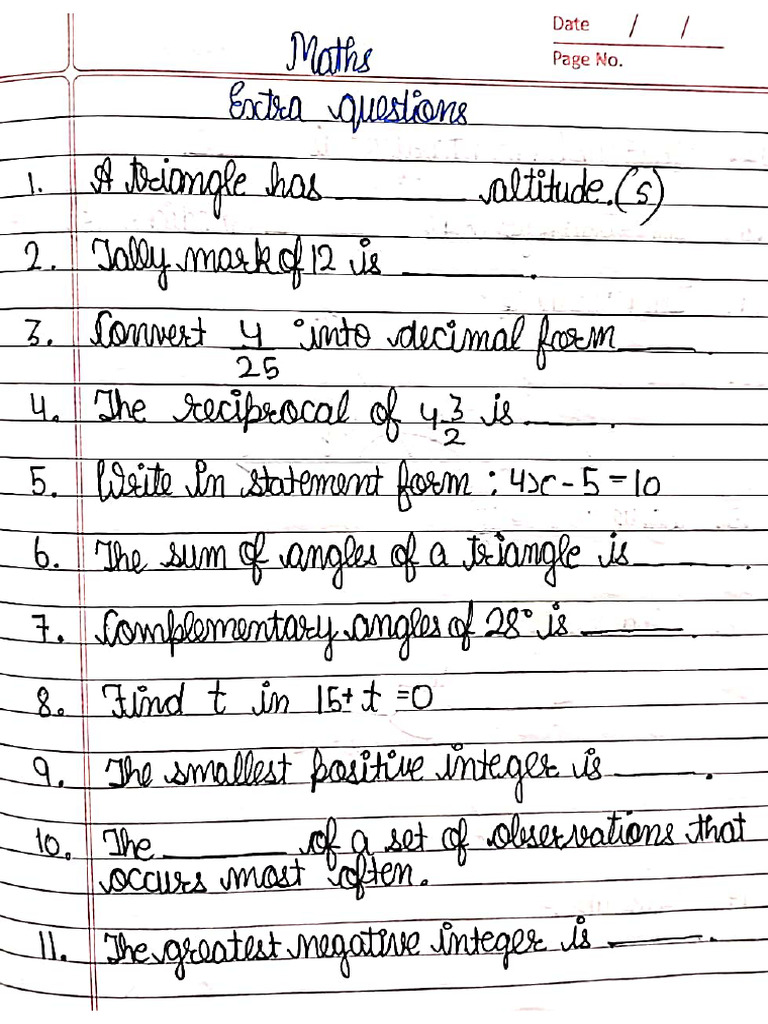 Date / /
Page No.
Maths
Extra questions
1. A triangle has ______ altitude.(s)
2. Tally mark of 12 is ______.
3. Convert 4/25 into decimal form ____.
4. The reciprocal of 4 3/2 is ____.
5. Write in statement form : 4x - 5 = 10
6. The sum of angles of a triangle is ____.
7. Complementary angles of 28° is ____.
8. Find t in 15+ t =0
9. The smallest positive integer is ____.
10. The ______ of a set of observations that
occurs most often.
11. The greatest negative integer is ____.